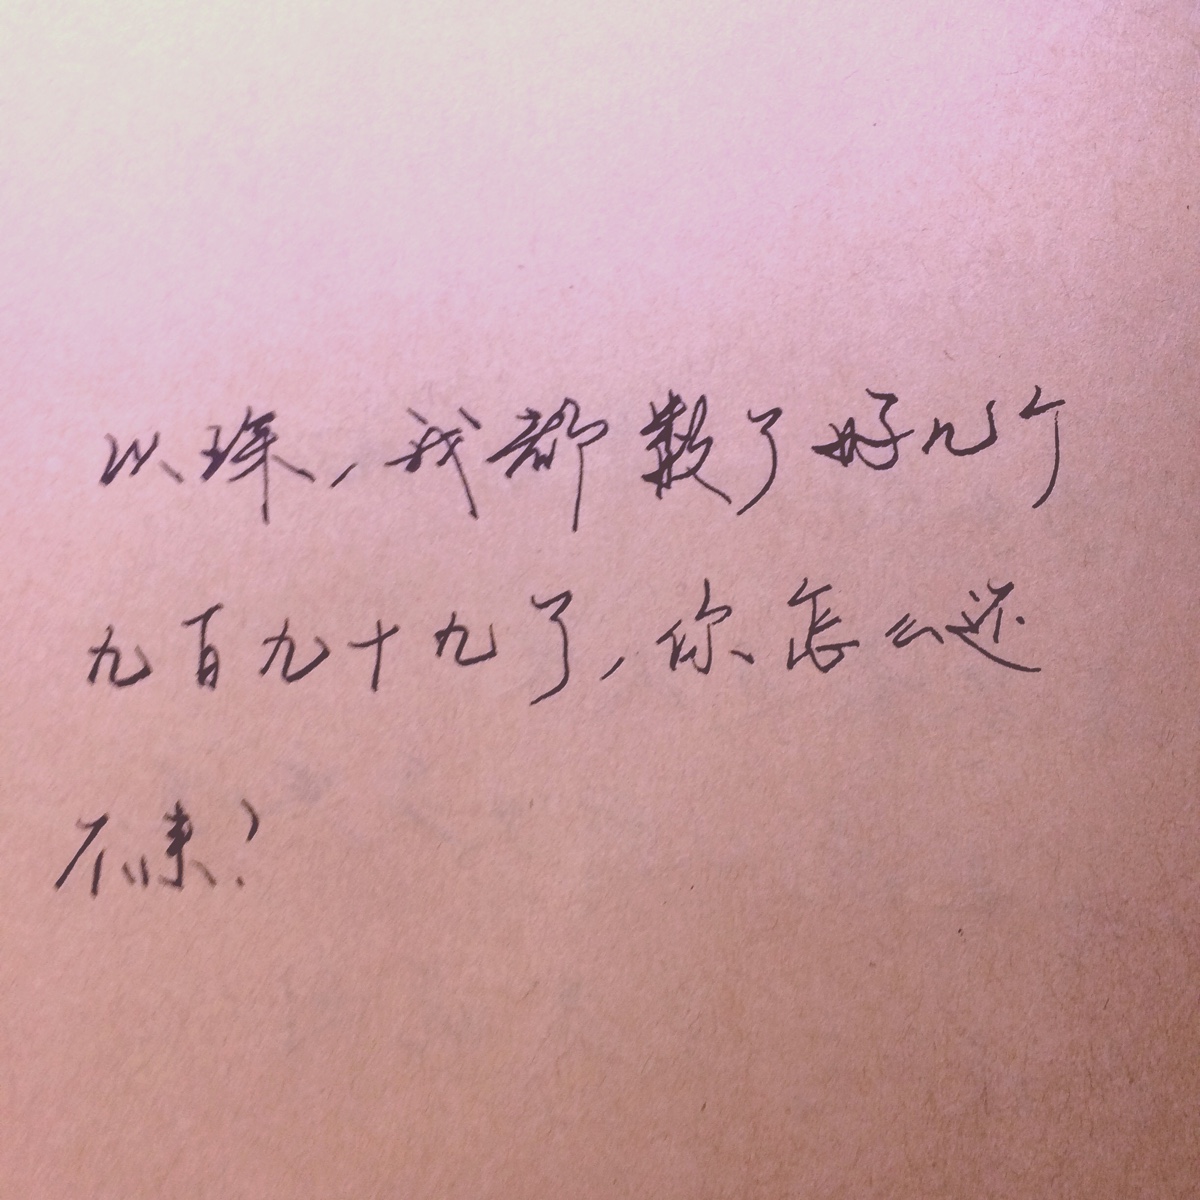 以琛，我都数了好几个
九百九十九了，你怎么还
不来？